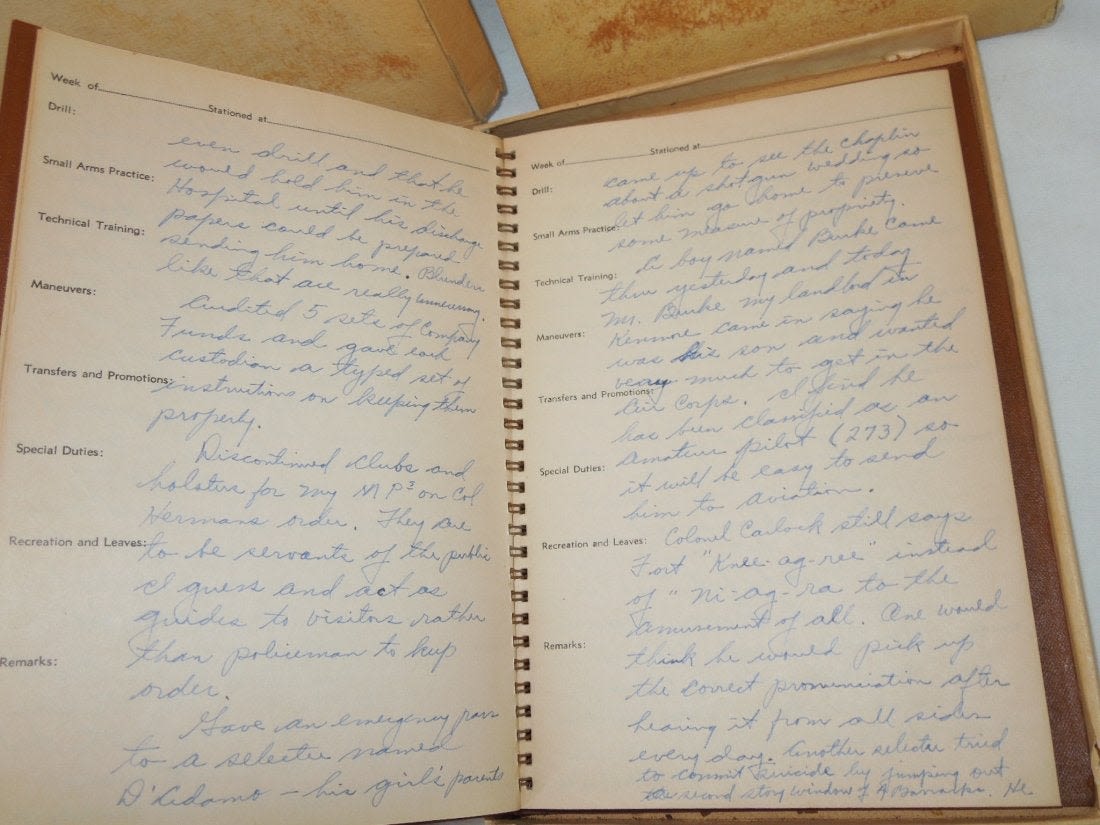 Week of Stationed at
Drill:
even drill and that he
would hold him in the
Small Arms Practice:
Hospital until his discharge
papers could be prepared
Technical Training:
sending him home. Blunders
like that are really unnecessary.
Maneuvers:
Audited 5 sets of Company
Funds and gave each
custodian a typed set of
Transfers and Promotions:
instructions on keeping them
properly.
Special Duties:
Discontinued clubs and
holsters for my MPs on Col
Hermans order. They are
Recreation and Leaves:
to be servants of the public
I guess and act as
guides to visitors rather
than policeman to keep
Remarks:
order.
Gave an emergency pass
to a selectee named
D'Adamo – his girl's parents
Week of Stationed at
came up to see the Chaplin
Drill:
about a shotgun wedding so
let him go home to preserve
Small Arms Practice:
some measure of propriety.
A boy named Burke came
Technical Training:
thru yesterday and today
Mr. Burke my landlord in
Maneuvers:
Kenmore came in saying he
was his son and wanted
very much to get in the
Transfers and Promotions:
Air Corps. I find he
has been classified as an
amateur pilot (273) so
Special Duties:
it will be easy to send
him to aviation.
Recreation and Leaves:
Colonel Carlock still says
Fort "Knee-ag-ree" instead
of "Ni-ag-ra to the
amusement of all. One would
Remarks:
think he would pick up
the correct pronunciation after
hearing it from all sides
every day. Another selectee tried
to commit suicide by jumping out
the second story window of Barracks. He